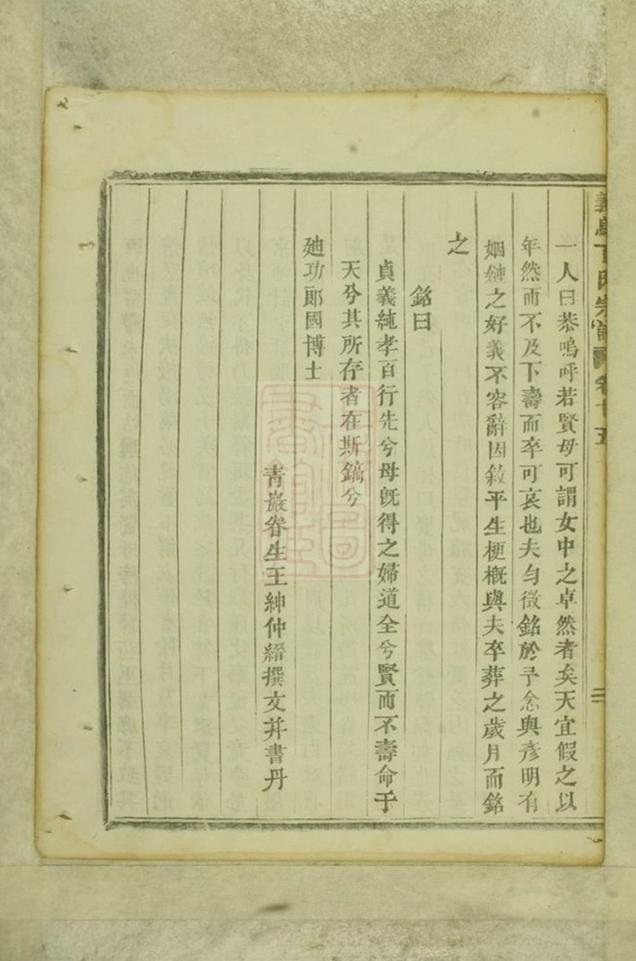 一人曰恭嗚呼若賢母可謂女中之卓然者矣天宜假之以
年然而不及下壽而卒可哀也夫勻徵銘於予念與彥明有
姻婕之好義不容辭因敘平生梗概與夫卒葬之歲月而銘
之
銘曰
貞義純孝百行先兮母旣得之婦道全兮賢而不壽命于
天兮其所存者在斯鐫兮
廸功郎國博士
青巖眷生王紳仲縉撰文并書丹